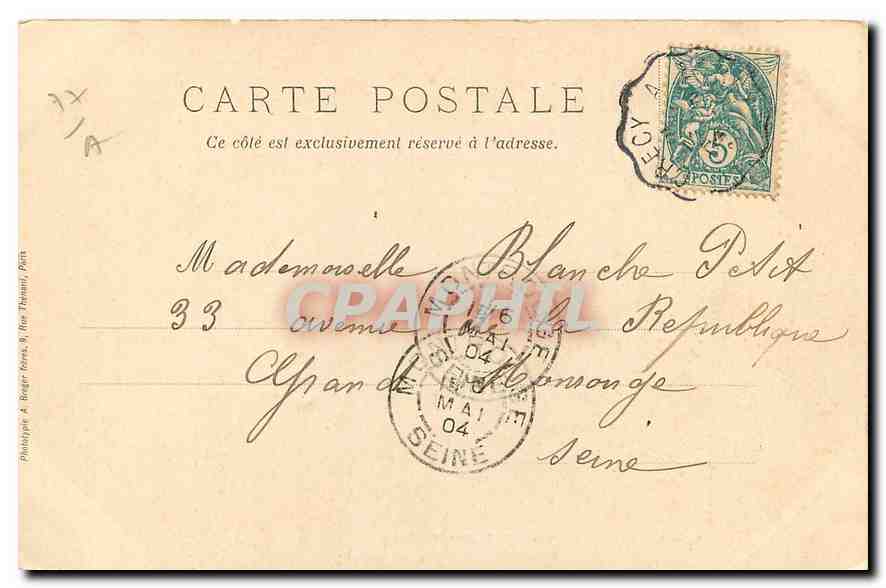 CARTE POSTALE
Ce côté est exclusivement réservé à l'adresse.
CRECY A
5c
POSTES
77
A
Mademoiselle Blanche Petit
33 avenue de la Republique
Grand Monrouge
Seine
MONTROUGE
6
MAI
04
MONTROUGE
MAI
04
SEINE
CPAPHIL
Phototypie A. Breger frères, 9, Rue Thénard, Paris